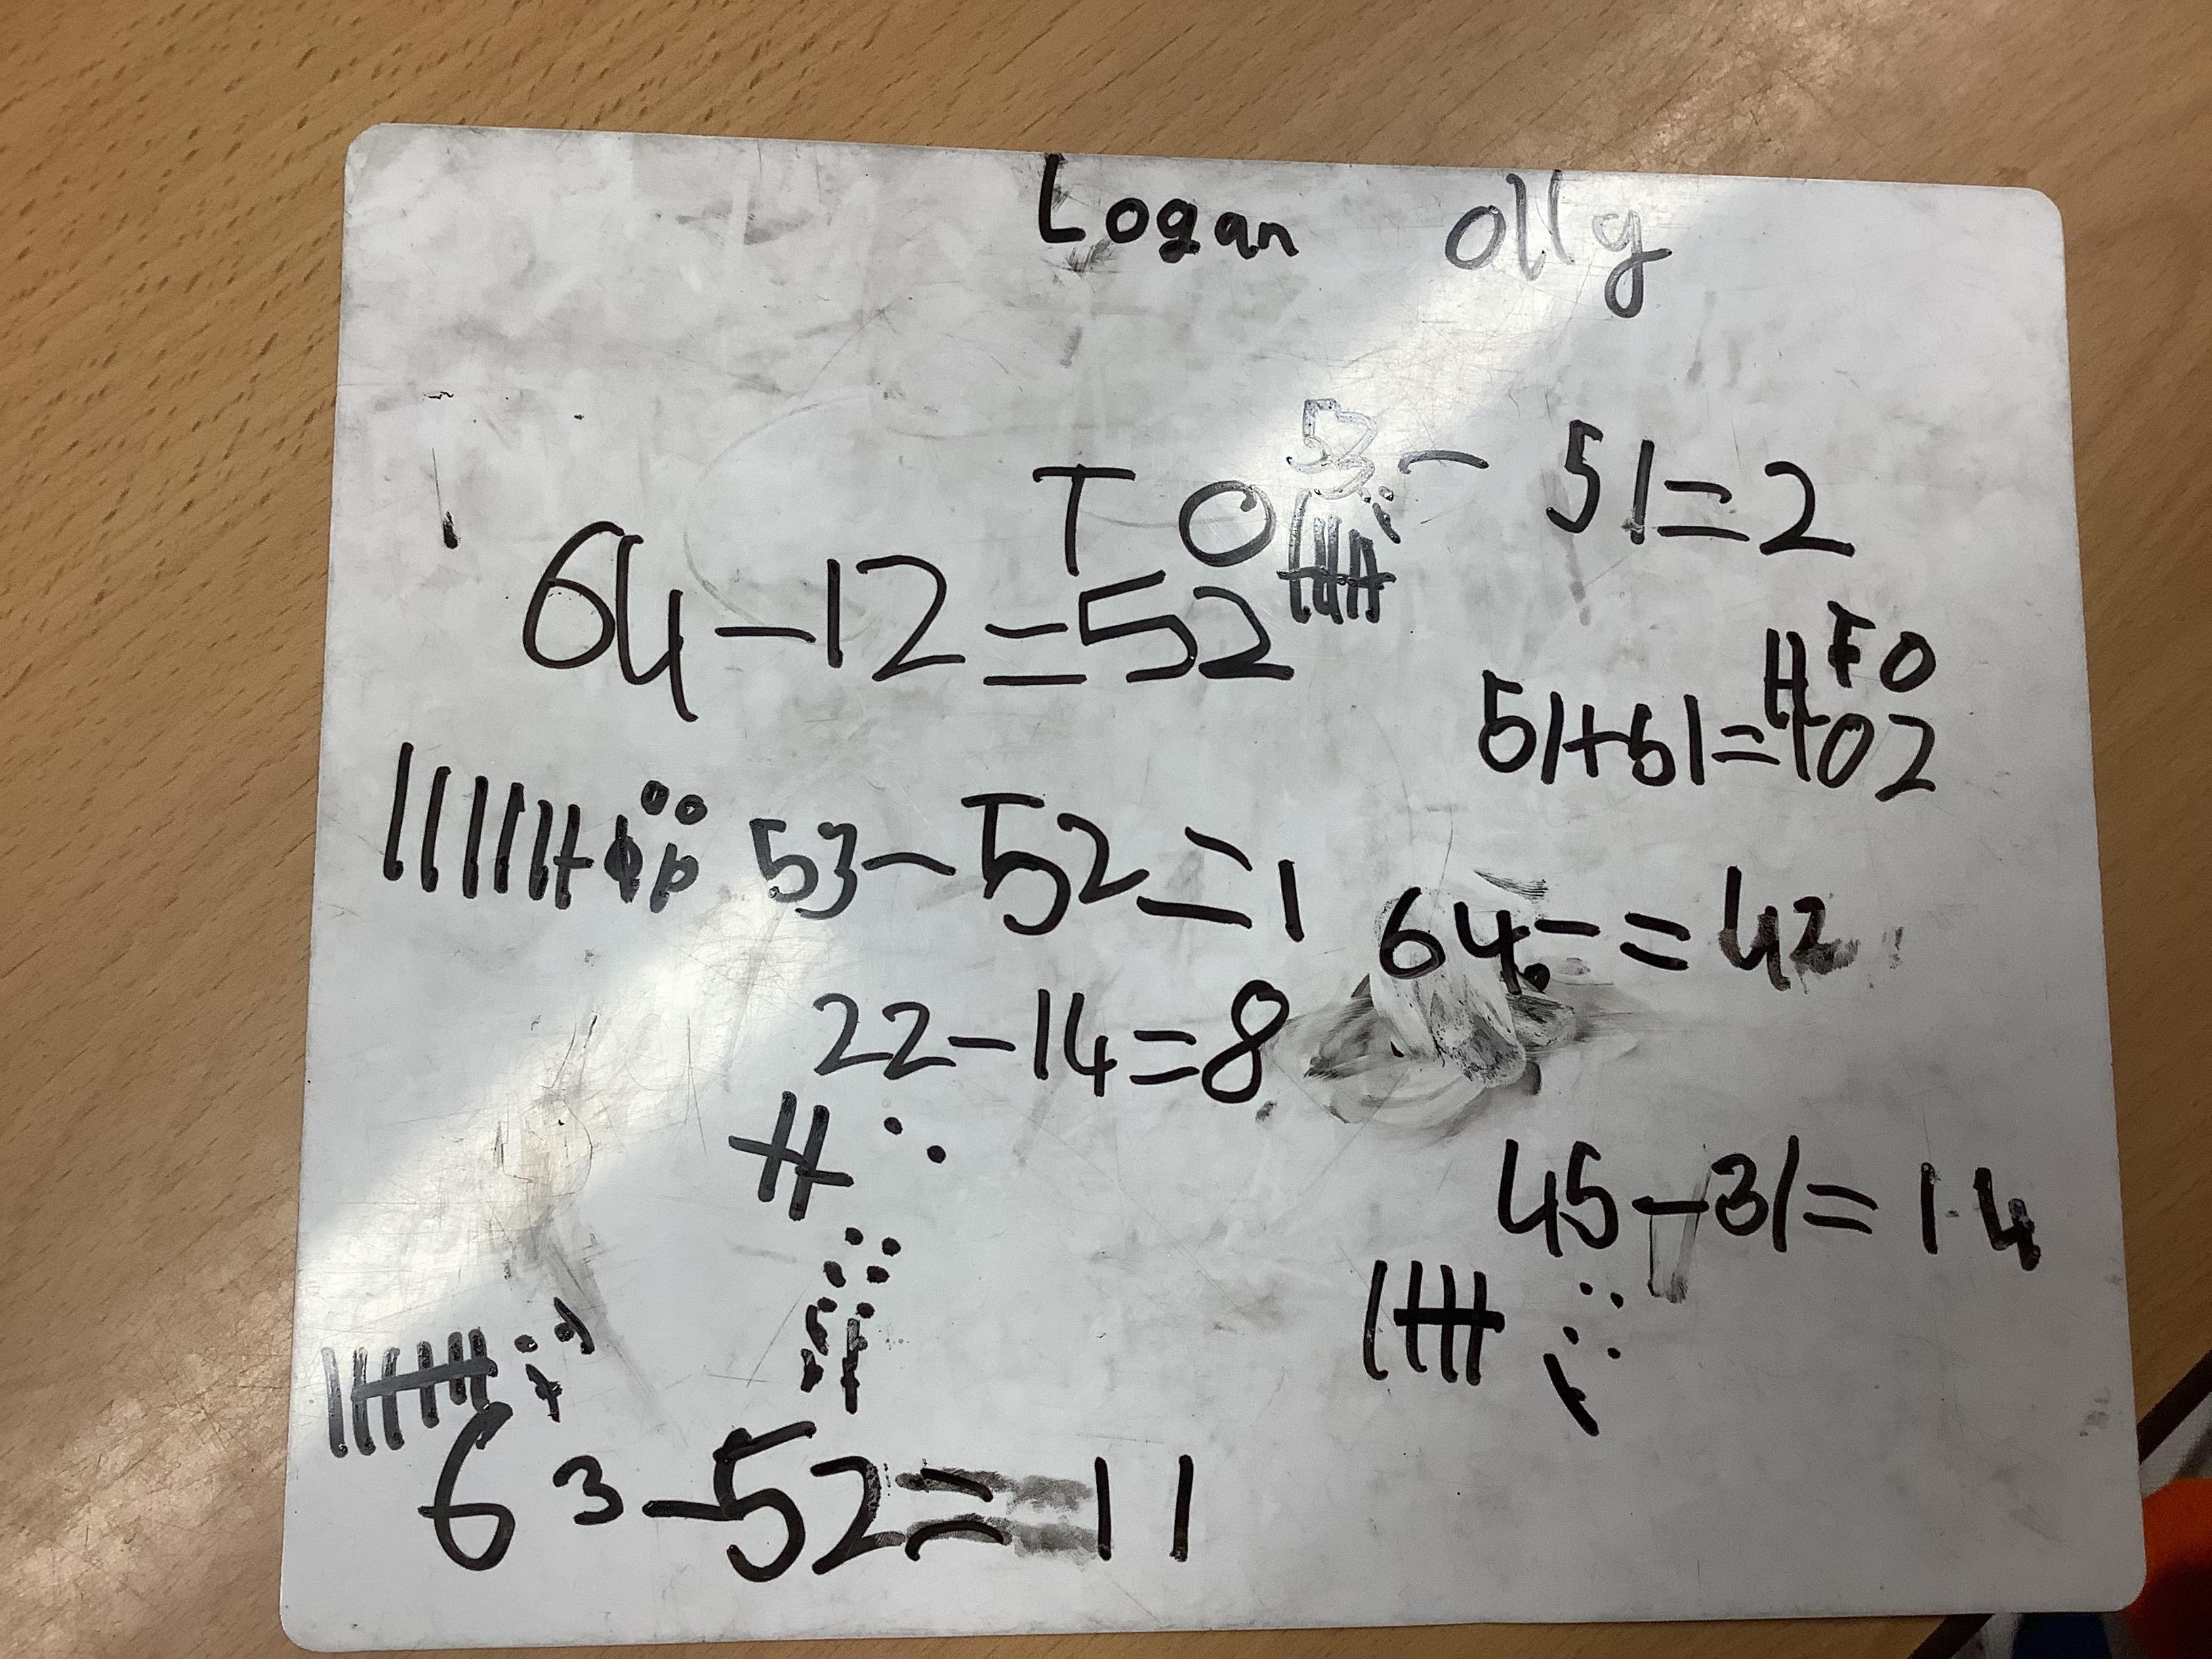 Logan olly
53 - 51 = 2
T O
64 - 12 = 52
H T O
51 + 51 = 102
53 - 52 = 1
64 - = 42
22 - 14 = 8
45 - 31 = 14
63 - 52 = 11